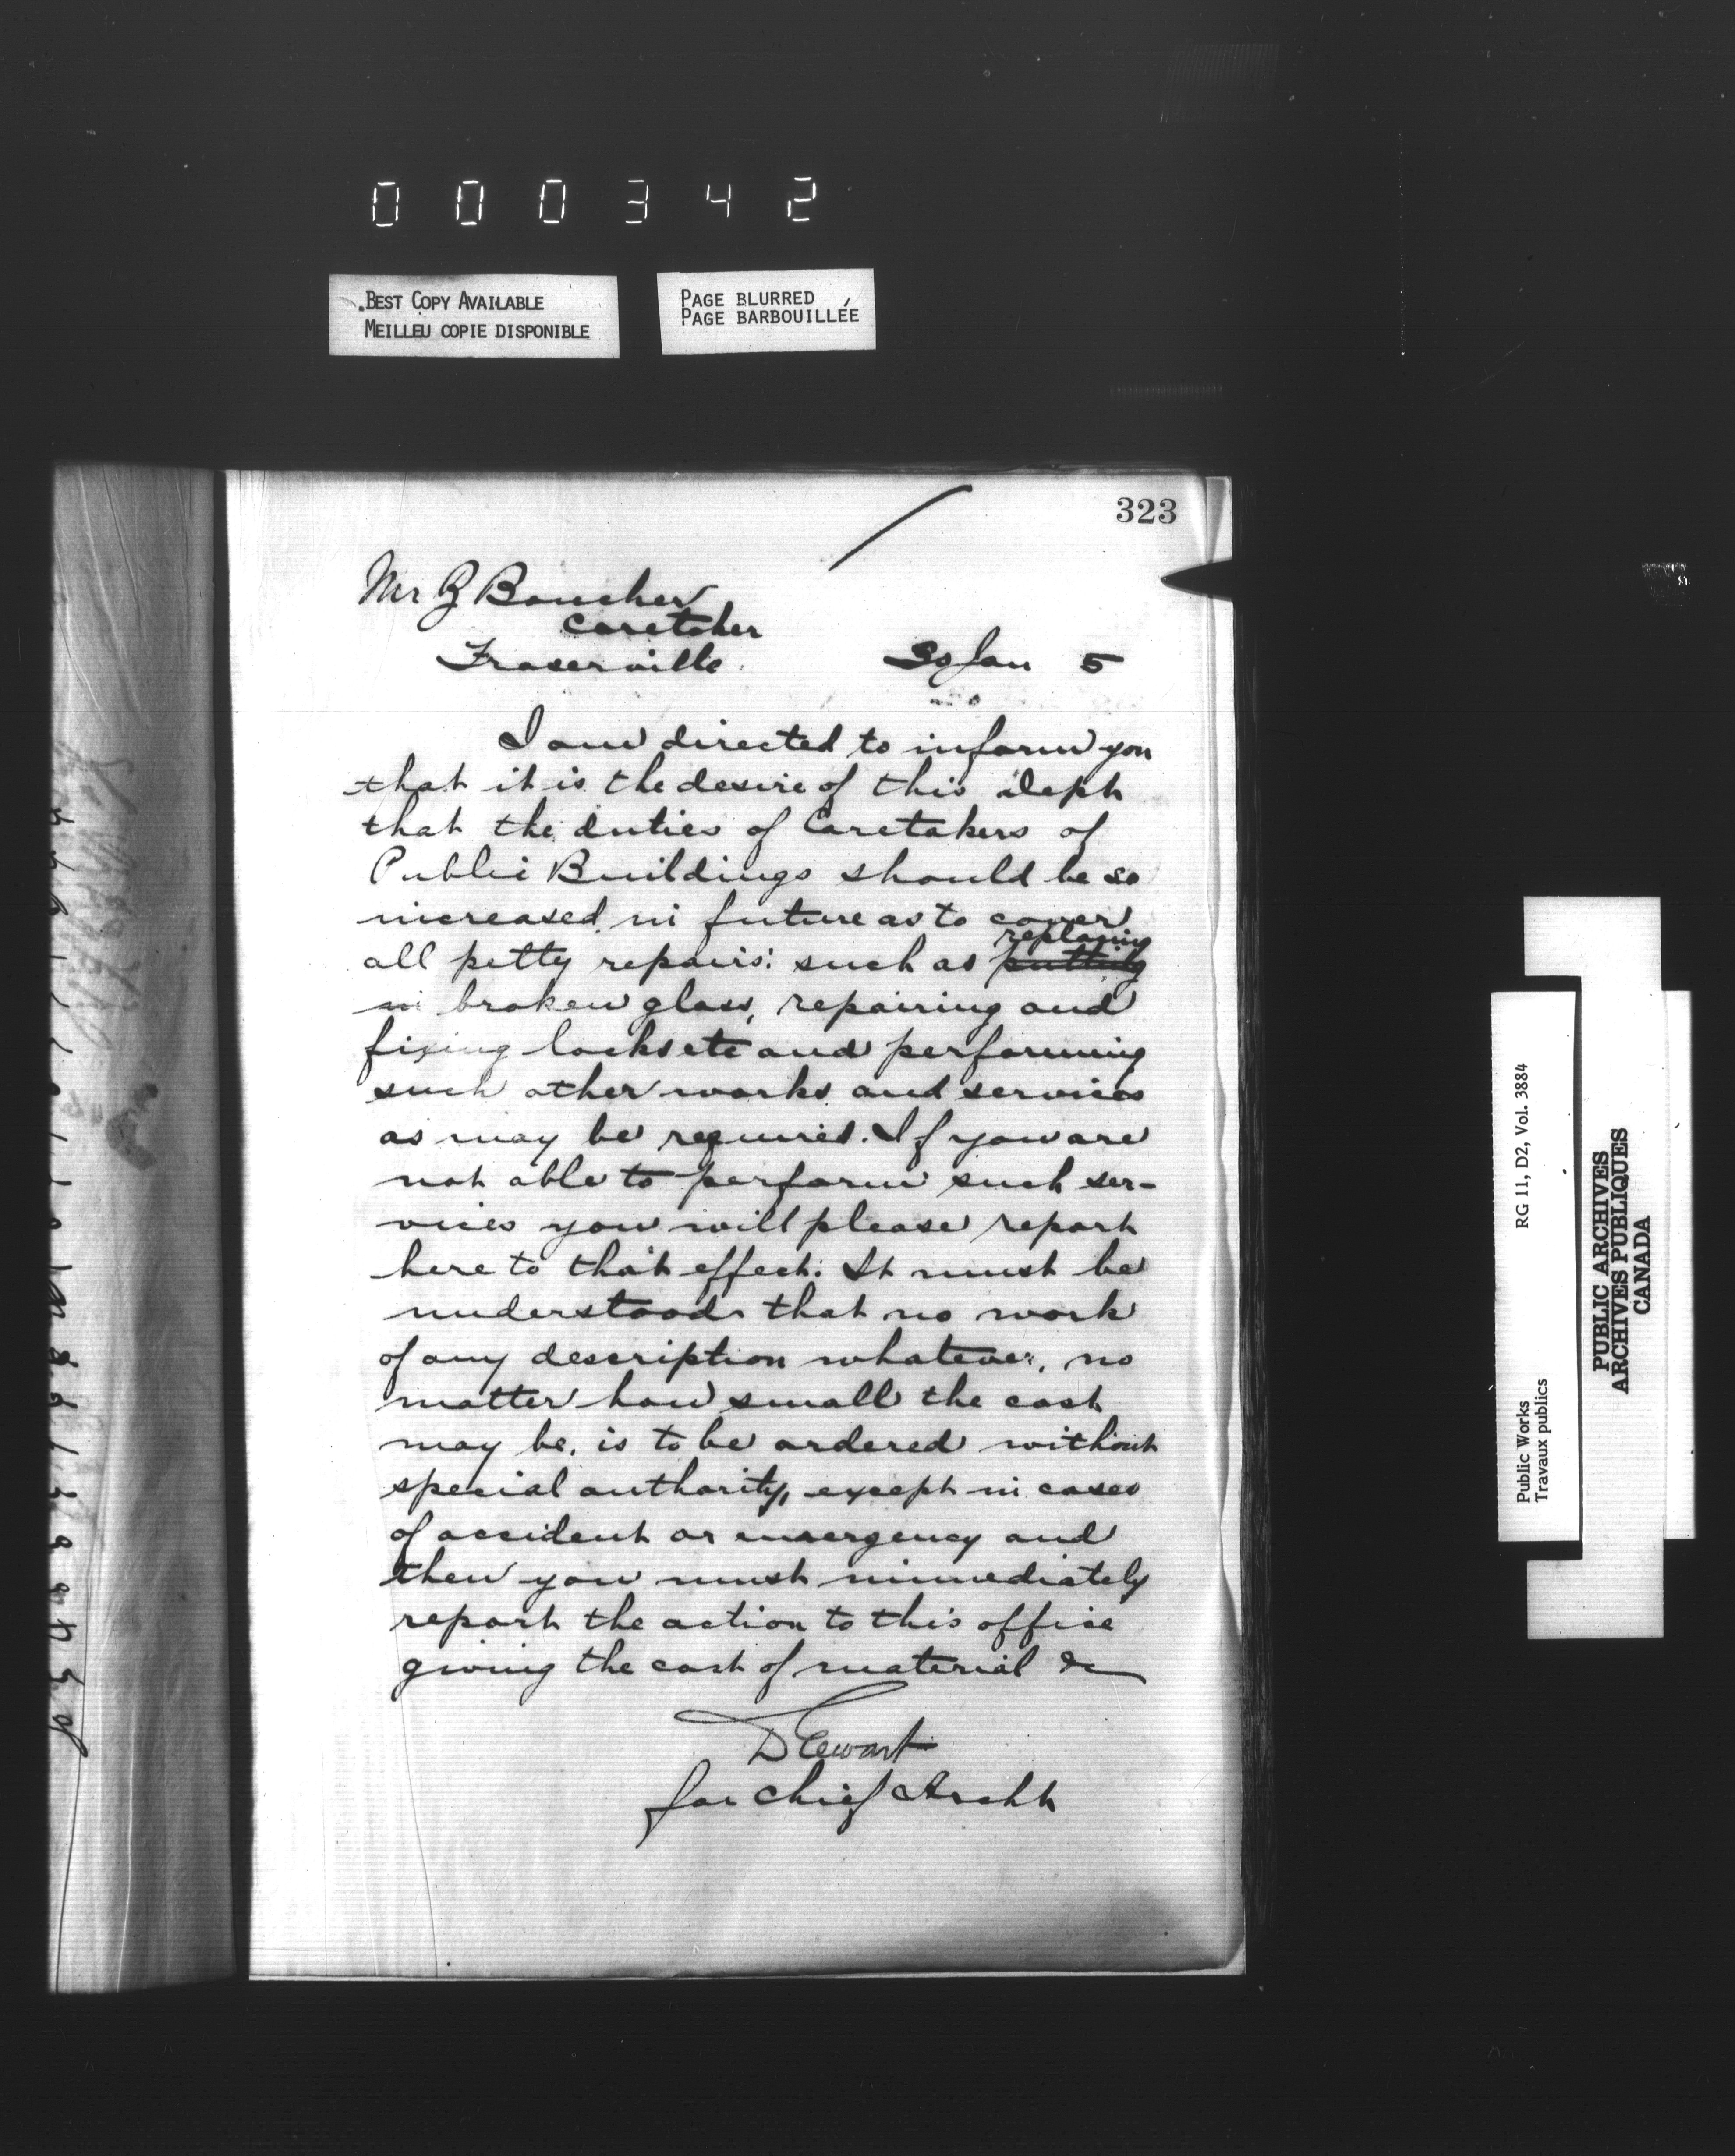 000342
BEST COPY AVAILABLE
MEILLEU COPIE DISPONIBLE
PAGE BLURRED
PAGE BARBOUILLÉE
323
Mr G Boucher
Caretaker
Fraserville 30 Jan 5
I am directed to inform you
that it is the desire of this Dept
that the duties of Caretakers of
Public Buildings should be so
increased in future as to cover
replacing
all petty repairs: such as putting
in broken glass, repairing and
fixing locks etc and performing
such other works and services
as may be required. If you are
not able to perform such ser-
vices you will please report
here to that effect. It must be
understood that no work
of any description whatever, no
matter how small the cost
may be, is to be ordered without
special authority, except in cases
of accident or emergency and
then you must immediately
report the action to this office
giving the cost of material &c
D Ewart
for Chief Archt
Public Works
Travaux publics
RG 11, D2, Vol. 3884
PUBLIC ARCHIVES
ARCHIVES PUBLIQUES
CANADA